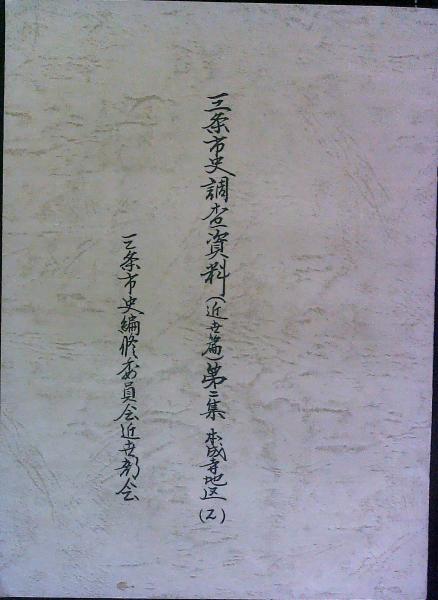 三条市史調査資料(近世篇)第二集 本成寺地区(2)
三条市史編修委員会近世部会